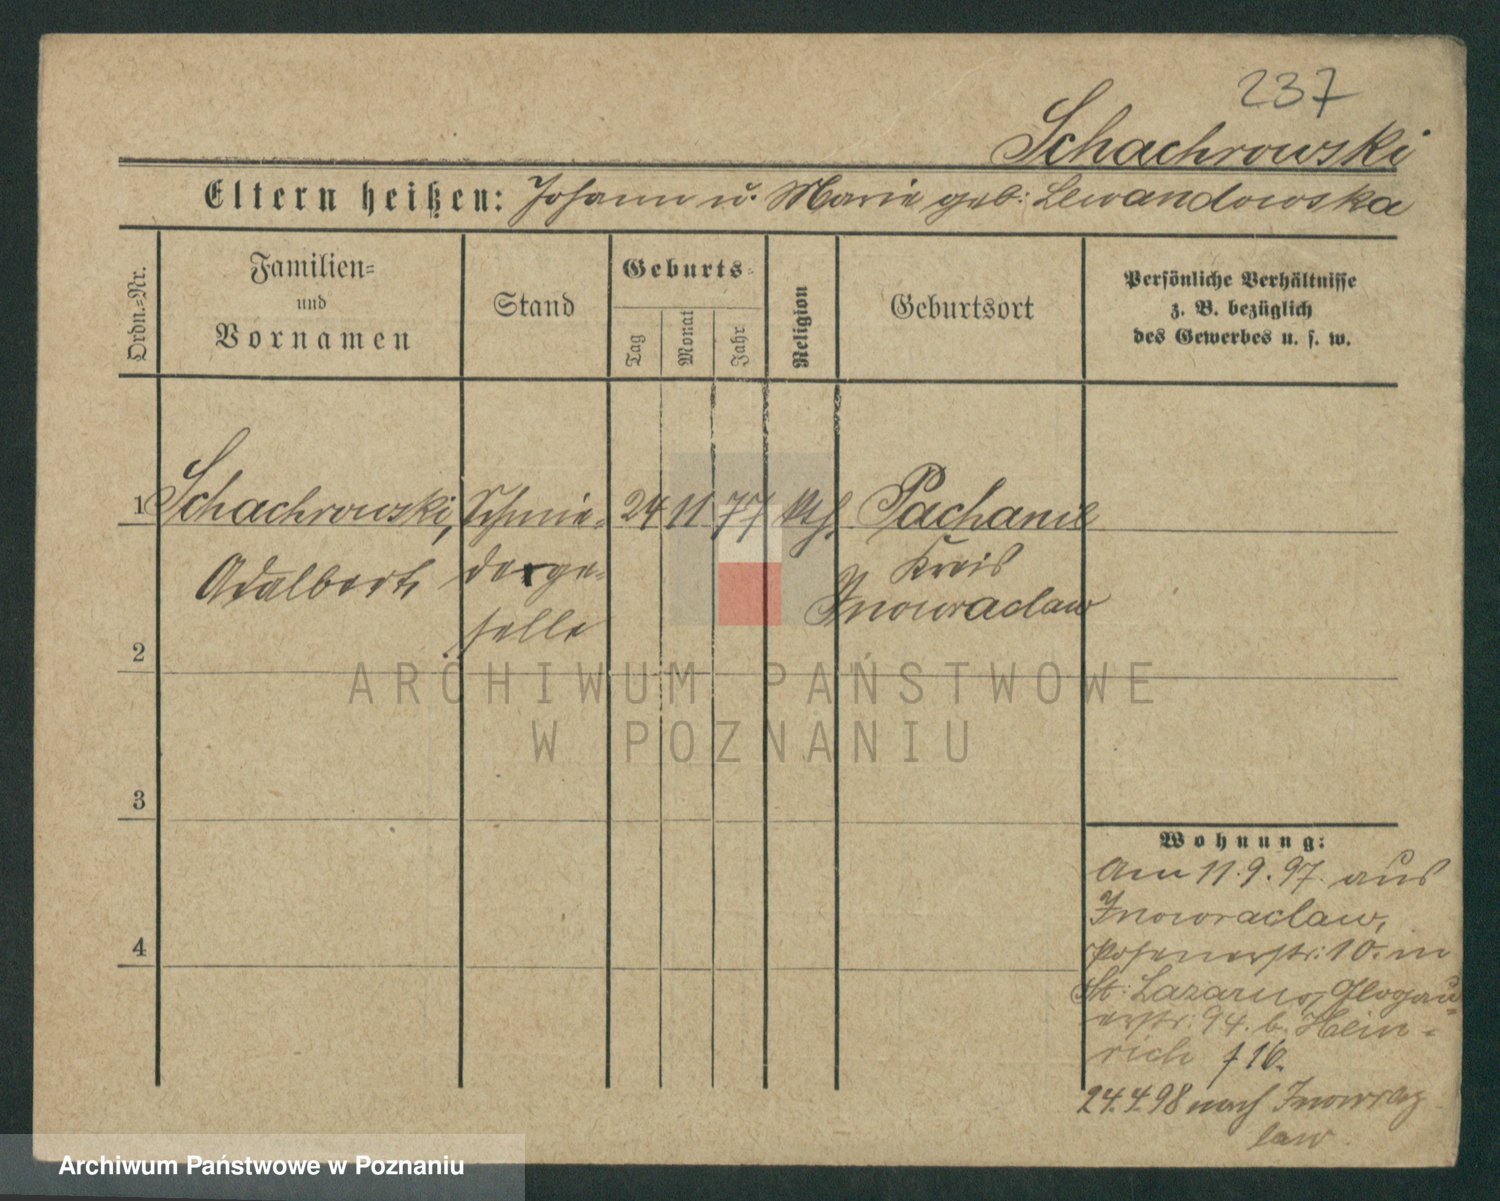 237
Schachrowski
Eltern heißen: Johann u. Marie geb: Lewandowska
Ordn.=Nr.
Familien=
und
Vornamen
Stand
Geburts=
Tag
Monat
Jahr
Religion
Geburtsort
Persönliche Verhältnisse
z. B. bezüglich
des Gewerbes u. s. w.
1 Schachrowski, Schmie= 24 11 77 kth. Pachanie
Adalbert, derge= Kreis
selle Inowraclaw
2
3
4
ARCHIWUM PAŃSTWOWE
W POZNANIU
Wohnung:
Am 11.9.97. aus
Inowraclaw,
Posenerstr: 10. in
St: Lazarus, Glogau=
erstr: 94. b. Hein=
rich f 16.
24.4.98 nach Inowraz
law
Archiwum Państwowe w Poznaniu